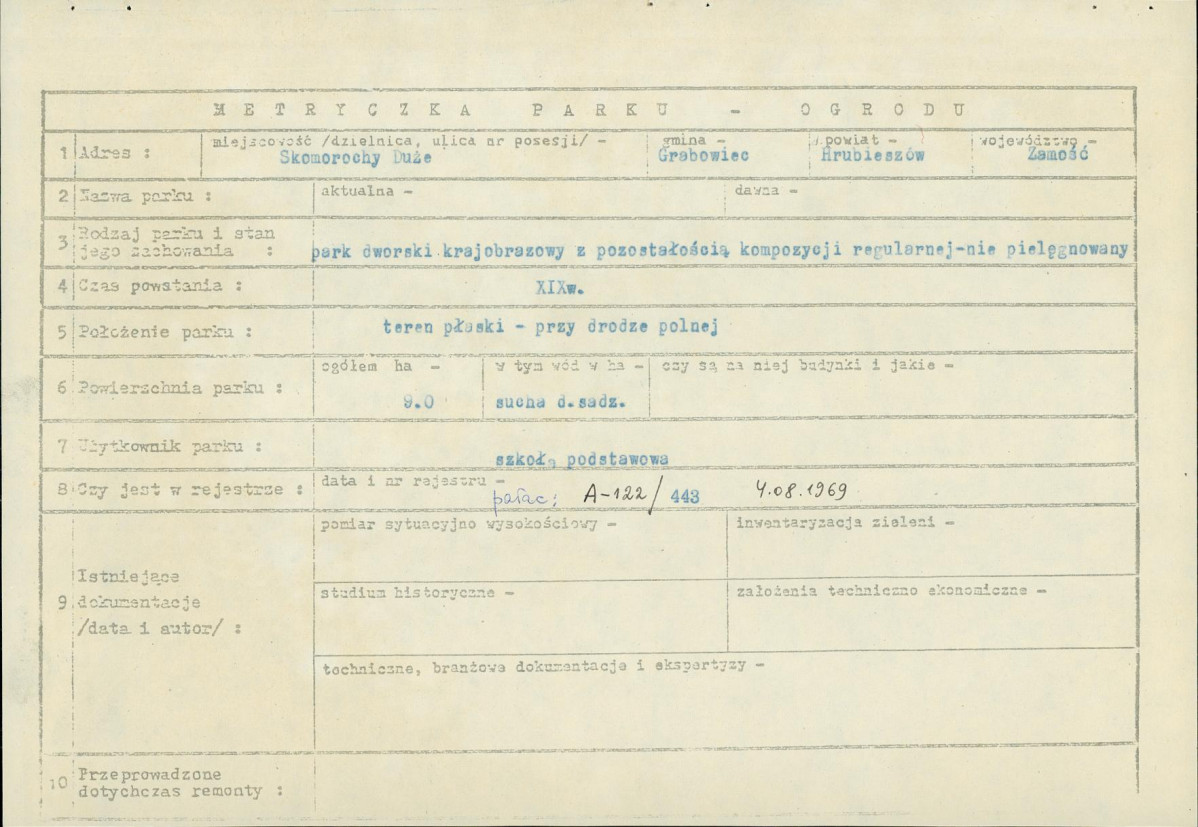 METRYCZKA PARKU - OGRODU
1 Adres : miejscowość /dzielnica, ulica nr posesji/ - gmina - powiat - województwo -
Skomorochy Duże Grabowiec Hrubieszów Zamość
2 Nazwa parku : aktualna - dawna -
3 Rodzaj parku i stan
jego zachowania : park dworski krajobrazowy z pozostałością kompozycji regularnej-nie pielęgnowany
4 Czas powstania : XIXw.
5 Położenie parku : teren płaski - przy drodze polnej
ogółem ha - w tym wód w ha - czy są na niej budynki i jakie -
6 Powierzchnia parku :
9.0 sucha d.sadz.
7 Użytkownik parku :
szkoła podstawowa
8 Czy jest w rejestrze : data i nr rejestru -
pałac: A-122/ 443 4.08.1969
pomiar sytuacyjno wysokościowy - inwentaryzacja zieleni -
9 Istniejące
dokumentacje
/data i autor/ :
studium historyczne - założenia techniczno ekonomiczne -
techniczne, branżowe dokumentacje i ekspertyzy -
10 Przeprowadzone
dotychczas remonty :